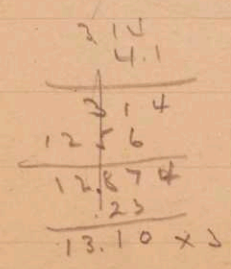 314
4.1
3 1 4
12 5 6
12.874
.23
13.10 ×